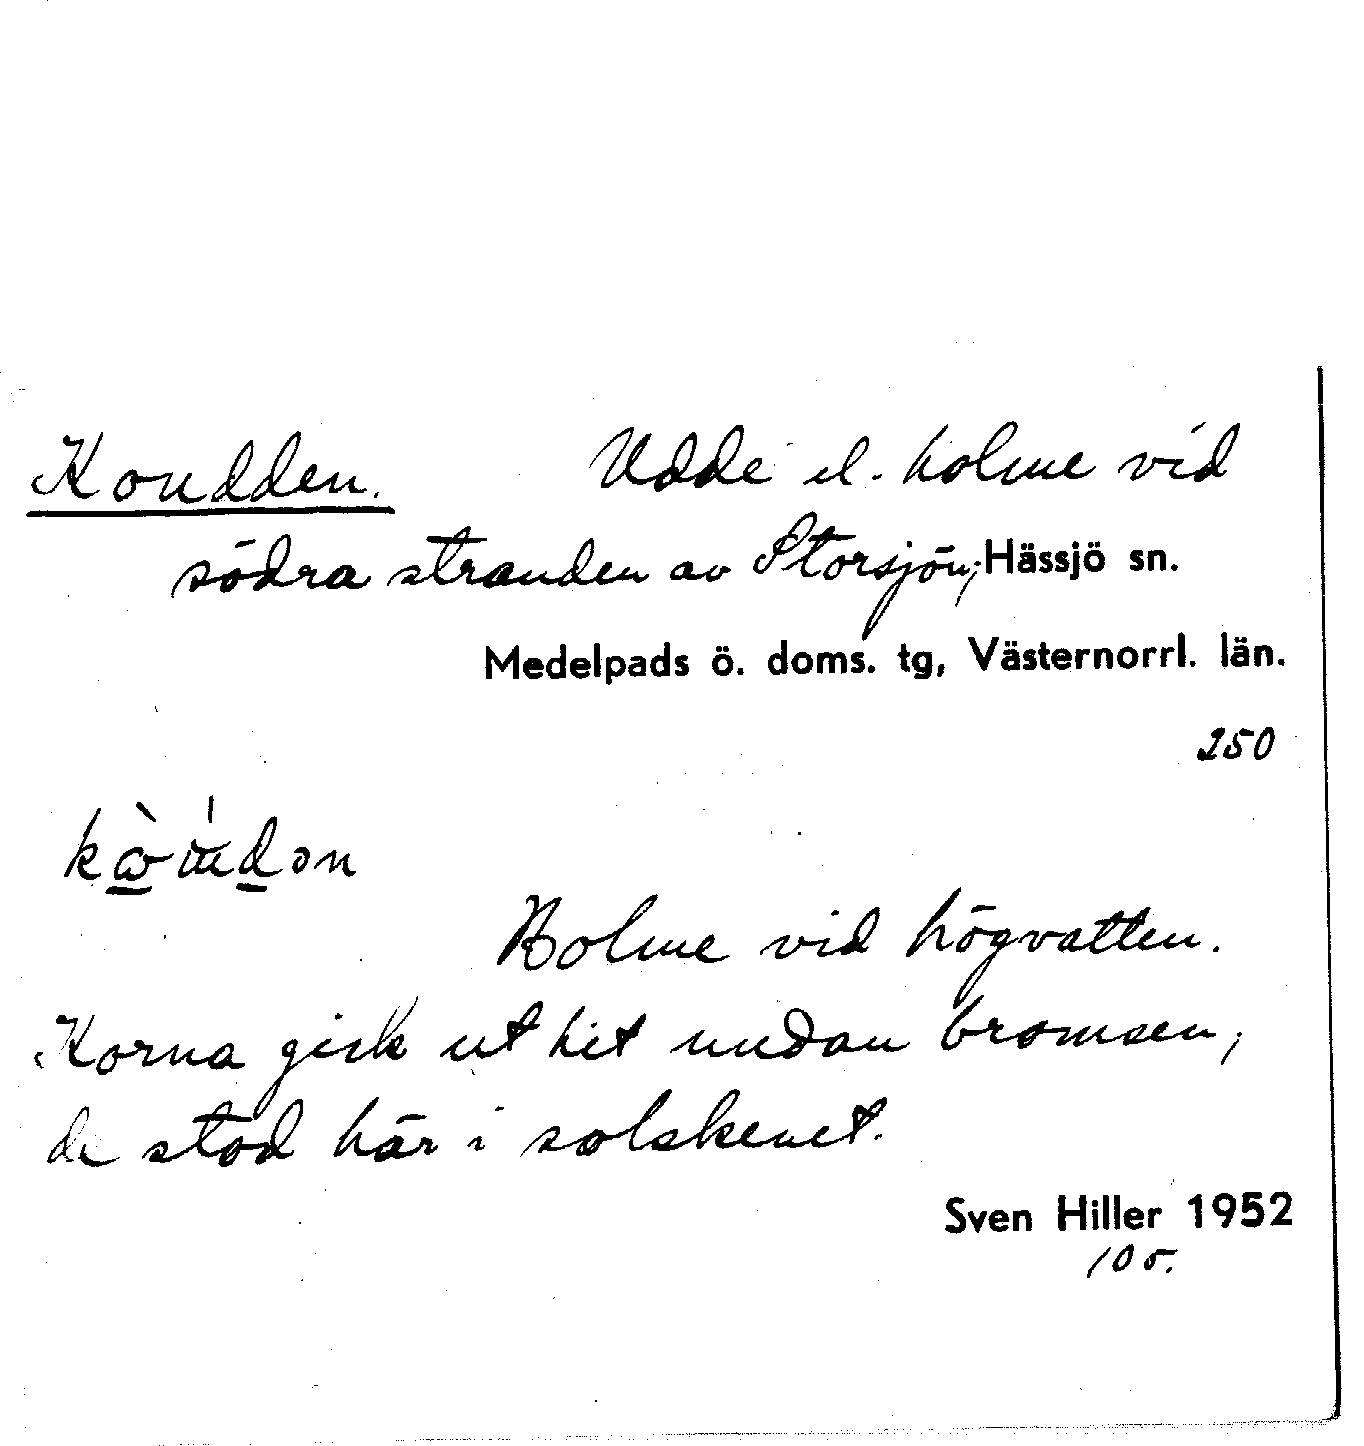 Koudden. Udde el. holme vid
södra stranden av Storsjön, Hässjö sn.
Medelpads ö. doms. tg, Västernorrl. län.
250
Holme vid högvatten.
Korna gick ut hit undan bromsen,
de stod här i solskenet.
Sven Hiller 1952